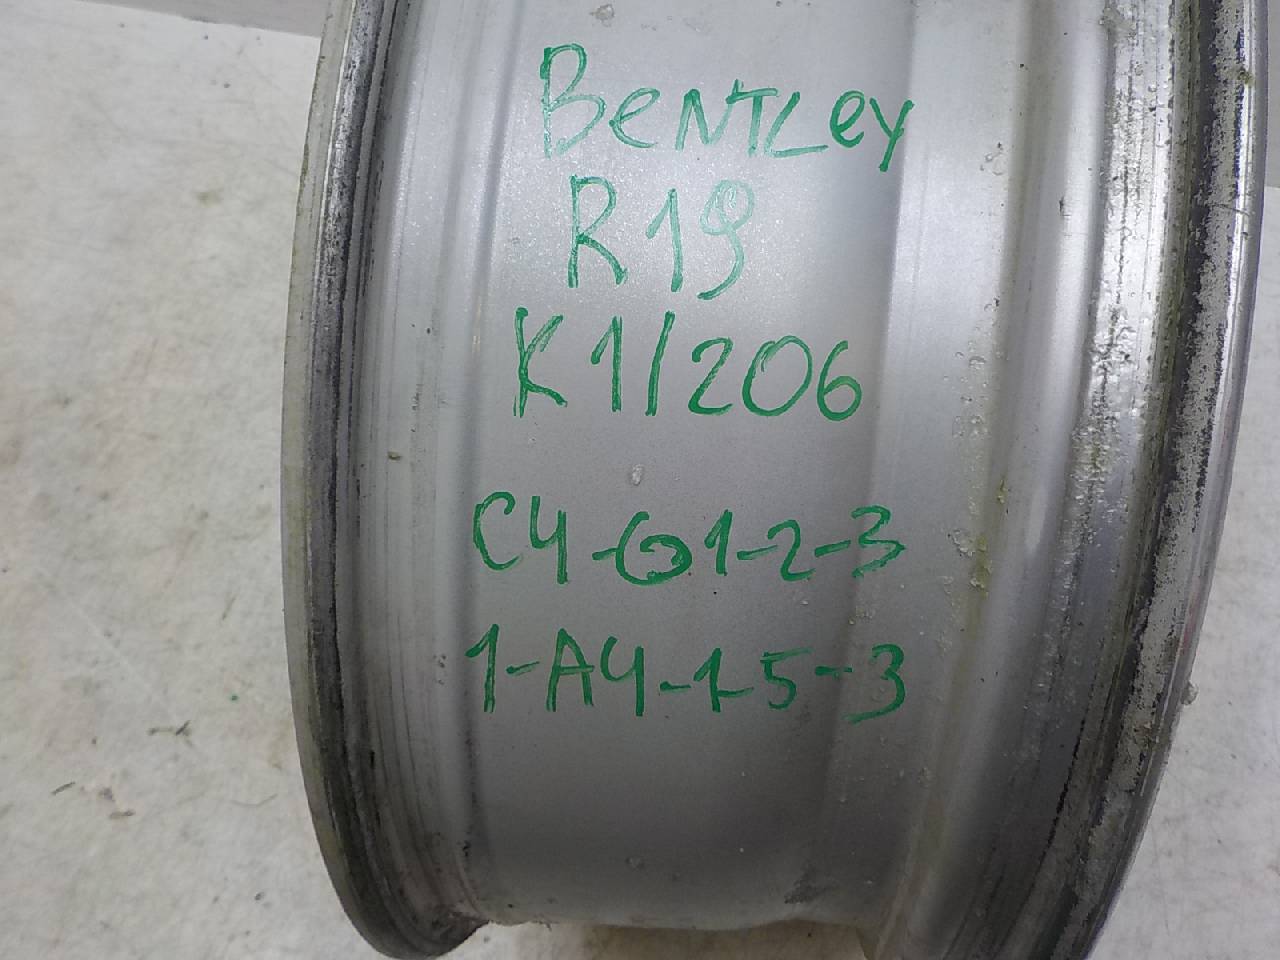 BeNTLey
R19
K1/206
C4-61-2-3
1-A4-1-5-3